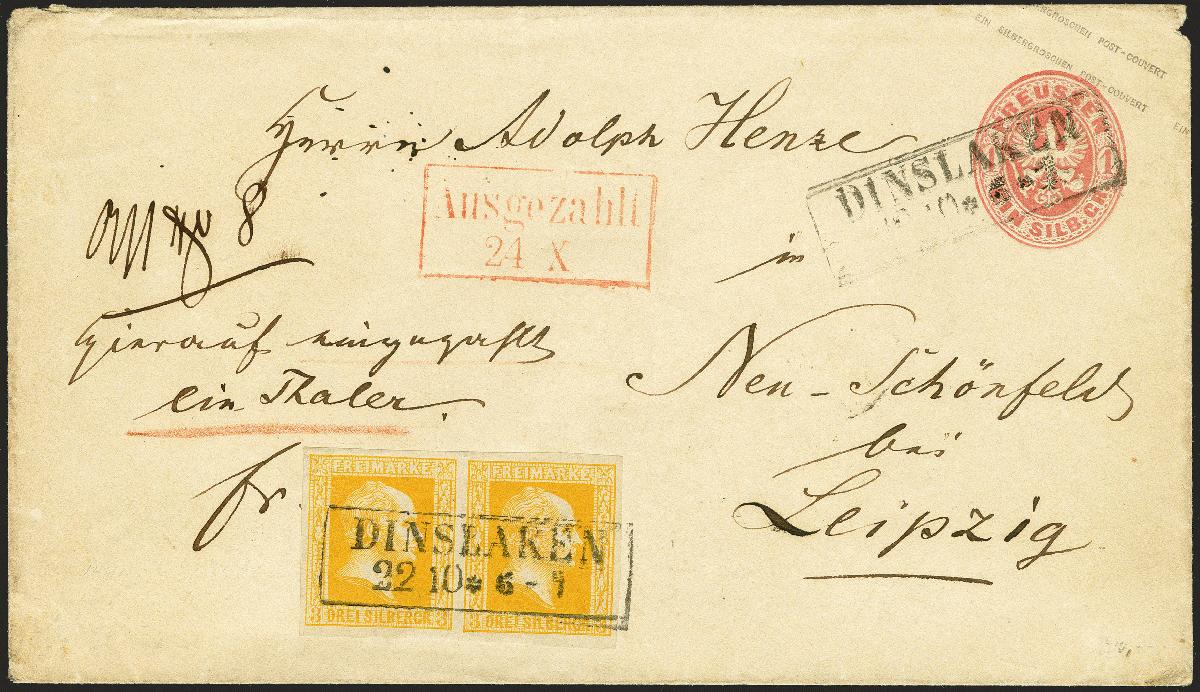 EIN SILBERGROSCHEN POST-COUVERT
EIN SILBERGROSCHEN POST-COUVERT
EIN
PREUSSEN
1
EIN SILB. GR.
DINSLAKEN
10 * 6 - 7
Herrn Adolph Henze
Ausgezahlt
24 X
8
in
Hierauf eingezahlt
ein Thaler.
Neu-Schönfeld
bei
Leipzig
fr.
FREIMARKE
3 DREI SILBERGR. 3
FREIMARKE
3 DREI SILBERGR. 3
DINSLAKEN
22 10 * 6 - 7